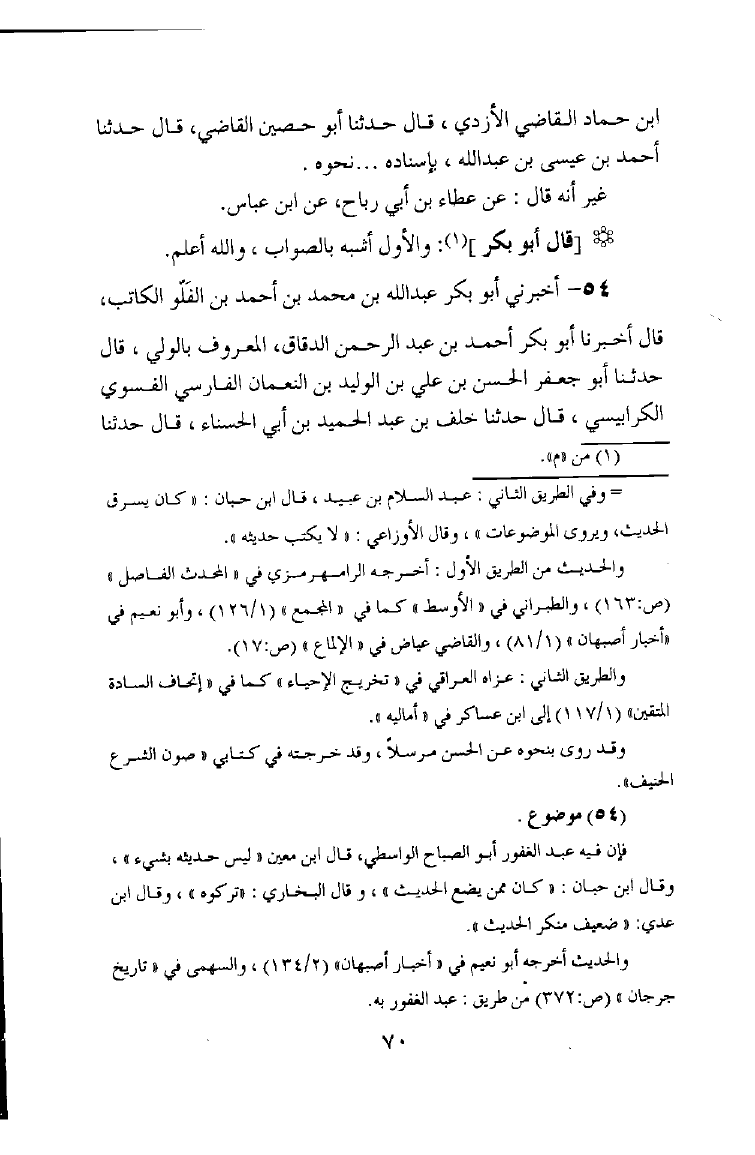 ابن حماد القاضي الأزدي ، قال حدثنا أبو حصين القاضي، قال حدثنا
أحمد بن عيسى بن عبدالله ، بإسناده ...نحوه .
غير أنه قال : عن عطاء بن أبي رباح، عن ابن عباس.
[قال أبو بكر ](١): والأول أشبه بالصواب ، والله أعلم.
٥٤- أخبرني أبو بكر عبدالله بن محمد بن أحمد بن الفَلّو الكاتب،
قال أخبرنا أبو بكر أحمد بن عبد الرحمن الدقاق، المعروف بالولي ، قال
حدثنا أبو جعفر الحسن بن علي بن الوليد بن النعمان الفارسي الفسوي
الكرابيسي ، قال حدثنا خلف بن عبد الحميد بن أبي الحسناء ، قال حدثنا
(١) من «م».
= وفي الطريق الثاني : عبد السلام بن عبيد ، قال ابن حبان : « كان يسرق
الحديث، ويروى الموضوعات » ، وقال الأوزاعي : « لا يكتب حديثه ».
والحديث من الطريق الأول : أخرجه الرامهرمزي في « المحدث الفاصل »
(ص:١٦٣) ، والطبراني في « الأوسط » كما في «المجمع » (١٢٦/١) ، وأبو نعيم في
«أخبار أصبهان » (٨١/١) ، والقاضي عياض في « الإلماع » (ص:١٧).
والطريق الثاني : عزاه العراقي في « تخريج الإحياء » كما في « إتحاف السادة
المتقين» (١١٧/١) إلى ابن عساكر في « أماليه ».
وقد روى بنحوه عن الحسن مرسلاً ، وقد خرجته في كتابي « صون الشرع
الحنيف».
(٥٤) موضوع .
فإن فيه عبد الغفور أبو الصباح الواسطي، قال ابن معين « ليس حديثه بشيء » ،
وقال ابن حبان : « كان ممن يضع الحديث » ، و قال البخاري : «تركوه » ، وقال ابن
عدي: « ضعيف منكر الحديث ».
والحديث أخرجه أبو نعيم في « أخبار أصبهان» (١٣٤/٢) ، والسهمى في « تاريخ
جرجان » (ص:٣٧٢) من طريق : عبد الغفور به.
٧٠